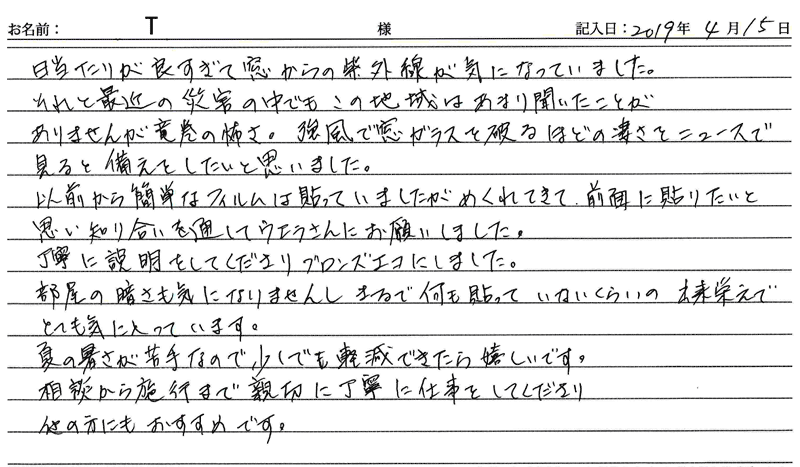 お名前： T 様 記入日：2019年 4月15日
日当たりが良すぎて窓からの紫外線が気になっていました。
それと最近の災害の中でもこの地域はあまり聞いたことが
ありませんが竜巻の怖さ。強風で窓ガラスを破るほどの凄さをニュースで
見ると備えをしたいと思いました。
以前から簡単なフィルムは貼っていましたがめくれてきて、前面に貼りたいと
思い知り合いを通してウエラさんにお願いしました。
丁寧に説明をしてくださりブロンズエコにしました。
部屋の暗さも気になりませんし まるで何も貼って いないくらいの 出来栄えで
とても気に入っています。
夏の暑さが苦手なので少しでも軽減できたら嬉しいです。
相談から施行まで親切に丁寧に仕事をしてくださり
他の方にもおすすめです。